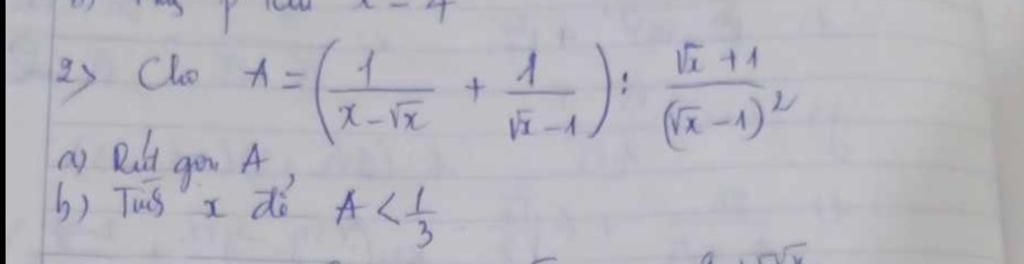 2> Cho A = (1/(x-√x) + 1/(√x-1)) : (√x+1)/(√x-1)²
a) Rút gọn A
b) Tìm x để A < 1/3